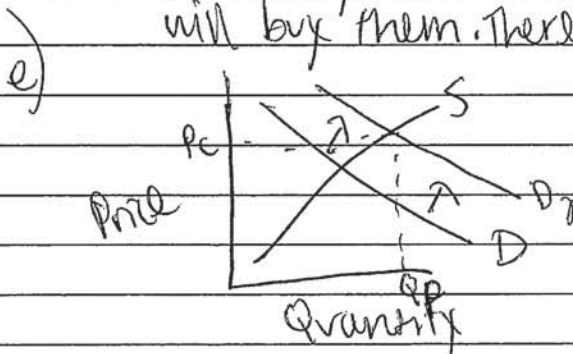 will buy them. There
e)
S
Pc
Price
D
Qp
Quantity